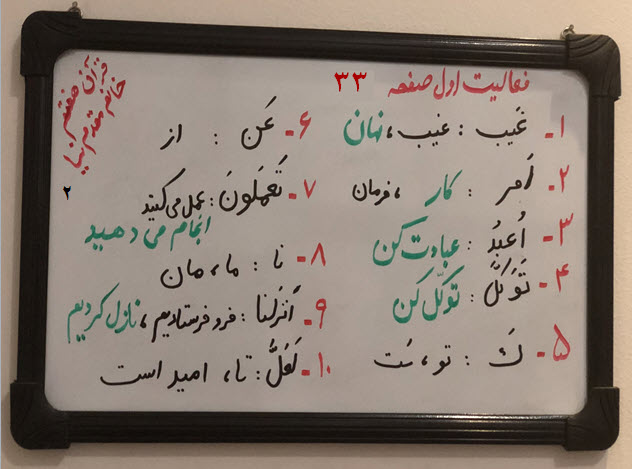 فعالیت اول صفحه ۳۳
قرآن هفتم
خانم مقدم نیا
۱- غَیب : غیب، نهان
۲- اَمر : کار ، فرمان
۳- اُعبُد : عبادت کن
۴- تَوَکَّل : توکّل کن
۵- کَ : تو، ـَت
۶- عَن : از
۷- تَعمَلونَ : عمل می‌کنید
انجام می دهید
۸- نا : ما، مان
۹- اَنزَلنا : فرو فرستادیم، نازل کردیم
۱۰- لَعَلَّ : تا، امید است
۲